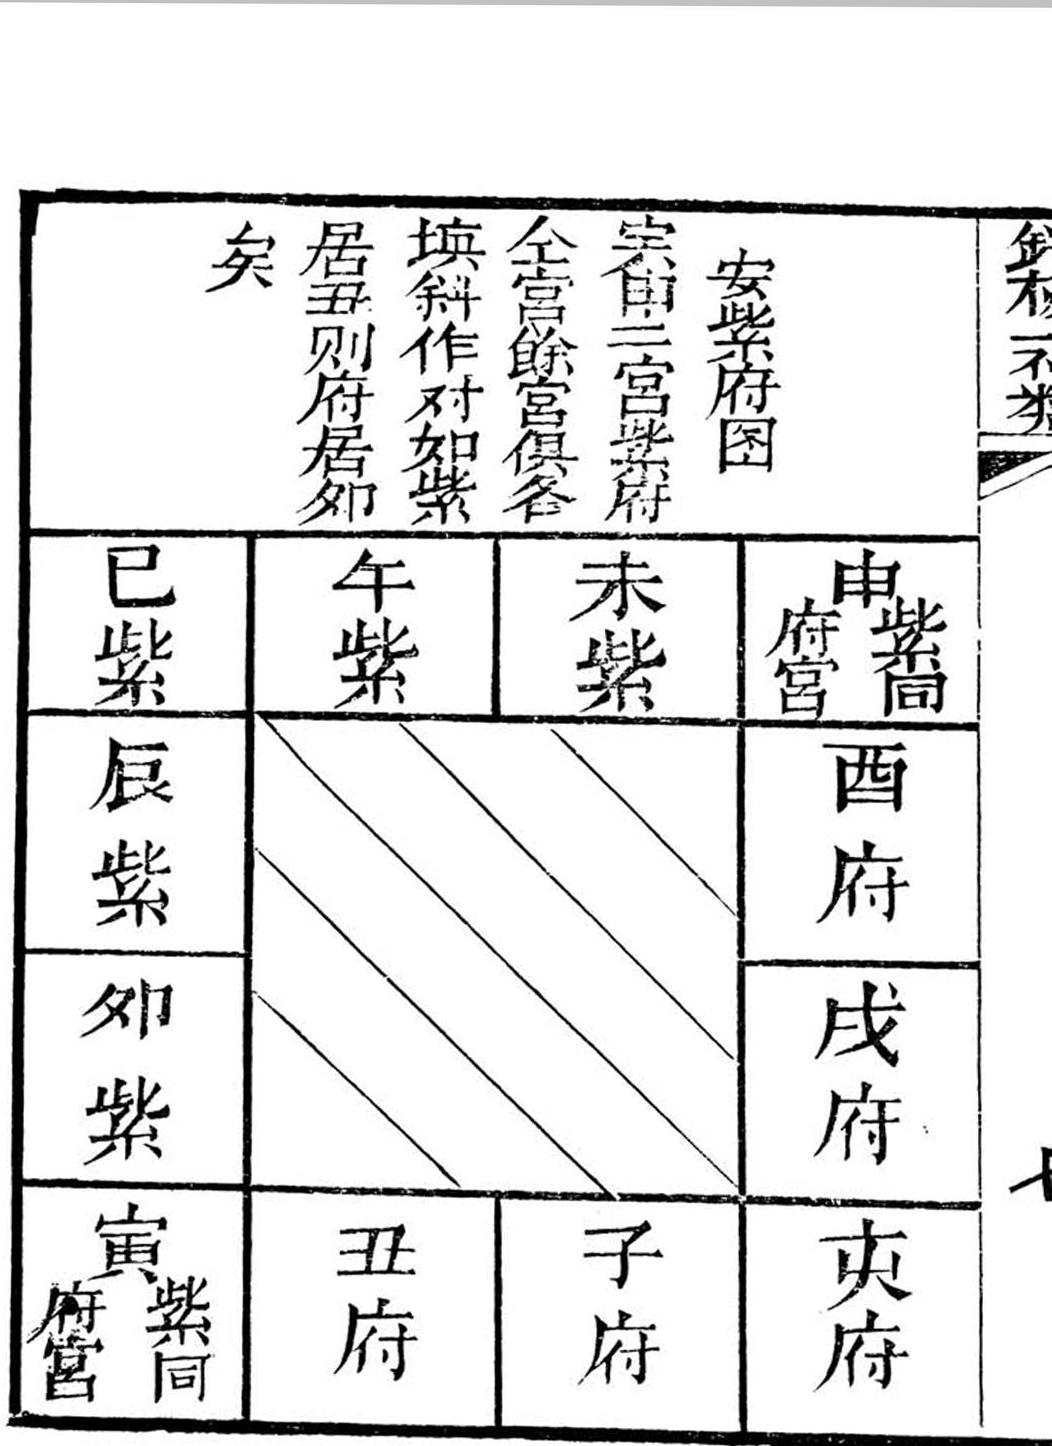 安紫府图
寅申二宮紫府
仝宮餘宮俱各
填斜作对如紫
居丑则府居卯
矣
申
紫同
府宮
未紫
午紫
巳紫
酉府
辰紫
戌府
卯紫
亥府
子府
丑府
寅
紫同
府宮